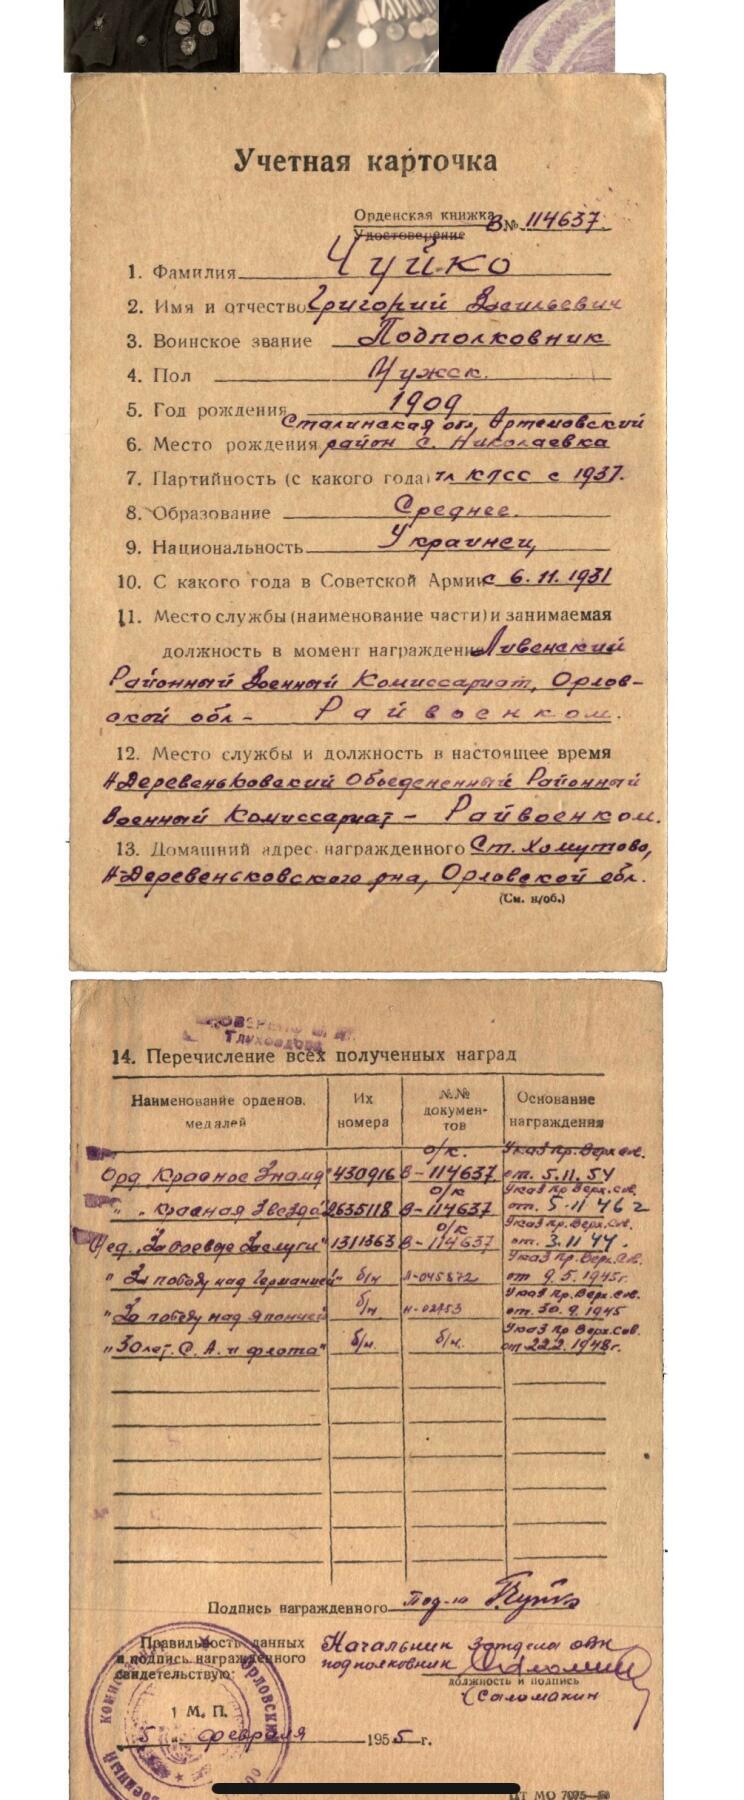 Учетная карточка
Орденская книжка В № 114637.
Удостоверение
1. Фамилия Чуйко
2. Имя и отчество Григорий Васильевич
3. Воинское звание Подполковник
4. Пол Мужск.
5. Год рождения 1909
Сталинская обл, Артемовский
6. Место рождения район с. Николаевка
7. Партийность (с какого года) чл КПСС с 1937.
8. Образование Среднее.
9. Национальность Украинец
10. С какого года в Советской Армии с 6.11.1931
11. Место службы (наименование части) и занимаемая
должность в момент награждения Ливенский
Районный Военный Комиссариат, Орлов-
ской обл- Райвоенком.
12. Место службы и должность в настоящее время
Н-Деревеньковский Объедененный Районный
Военный Комиссариат - Райвоенком.
13. Домашний адрес награжденного Ст. Хомутово,
Н-Деревеньковского р-на, Орловской обл.
(См. н/об.)
14. Перечисление всех полученных наград
Наименование орденов, медалей Их номера №№ документов Основание награждения
о/к. Указ Пр. Верх. Сов.
Орд Красное Знамя 430916 В-114637 от. 5.11.54
о/к Указ Пр Верх. Сов.
" " Красная Звезда" 2635118 В-114637 от. 5-11 46 г
о/к Указ Пр. Верх. Сов.
Мед. "За боевые Заслуги" 1311363 В-114637 от. 3.11 44.
Указ Пр. Верх. Сов.
" За победу над Германией" б/н Л-045872 от 9.5.1945г.
Указ Пр Верх. Сов.
"За победу над Японией б/н от 30.9.1945
Указ Пр Верх. Сов.
"30 лет. С. А. и флота" б/н. б/н. от 22.2.1948г.
Подпись награжденного
Правильность данных Начальник
и подпись награжденного подполковник
свидетельствую: должность и подпись
(Соломакин
М. П.
5 февраля 1955 г.